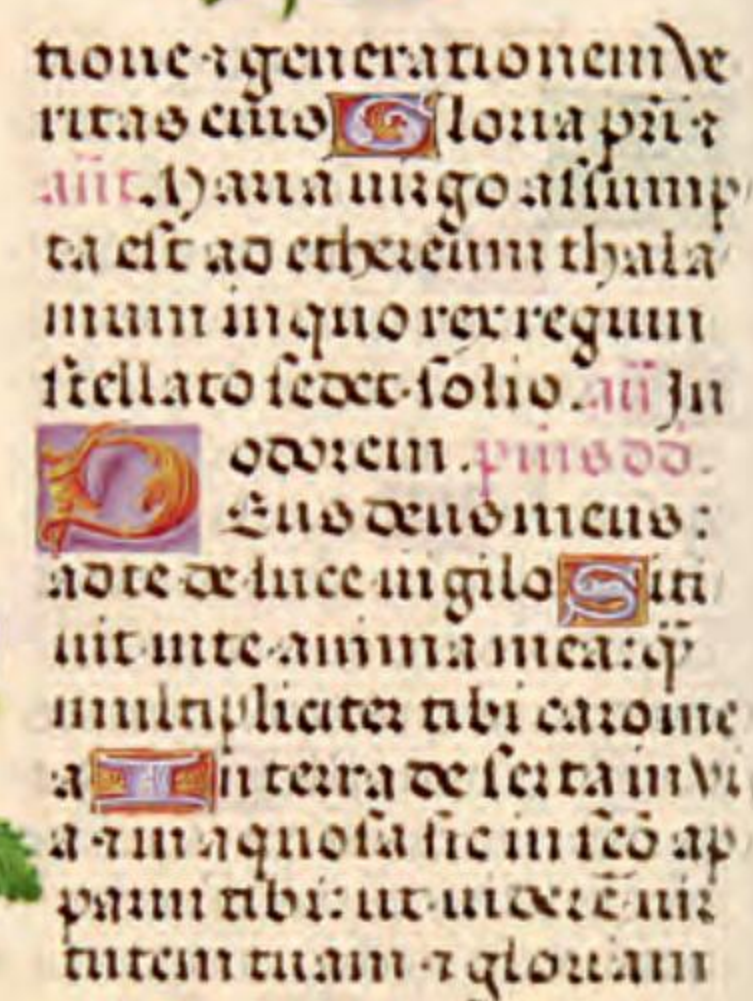 tione ⁊ generationem ve
ritas eius Gloria pr̄i ⁊
an̄t. Maria uirgo assump
ta est ad ethereum thala
mum in quo rex regum
stellato sedet solio. an̄ In
odorem. p̄mus dd̄.
Deus deus meus:
ad te de luce uigilo Siti
uit in te anima mea: q̄
multipliciter tibi caro me
a In terra deserta inui
a ⁊ in aquosa sic in sc̄o ap
parui tibi: ut uiderē uir
tutem tuam ⁊ gloriam